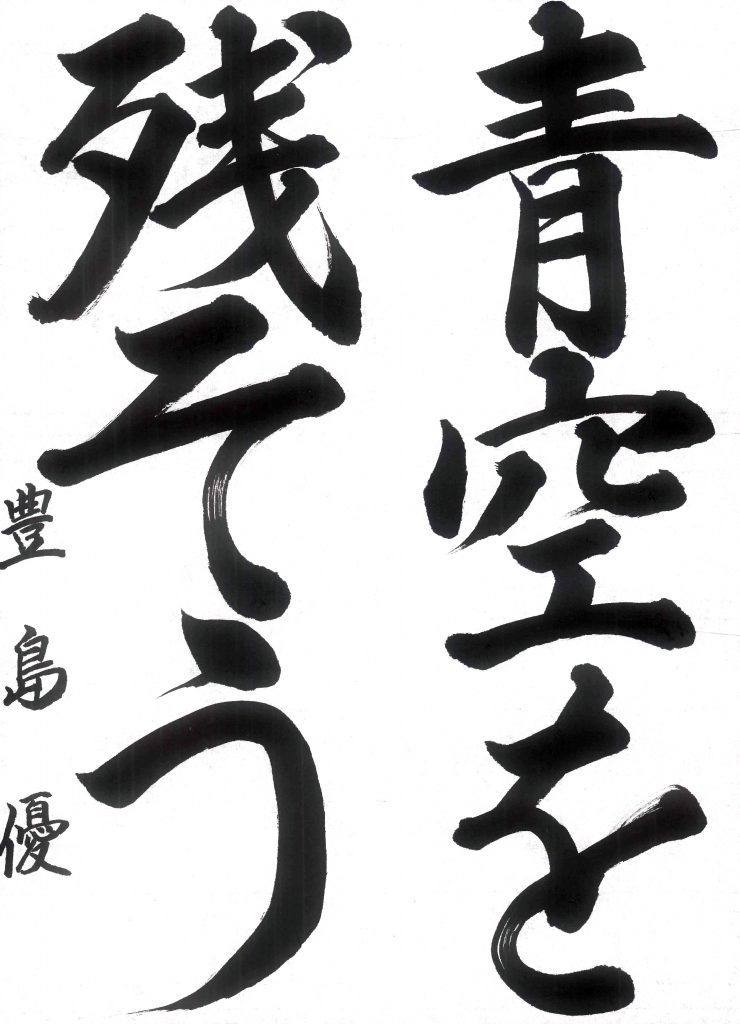 青空を
残そう
豊島優